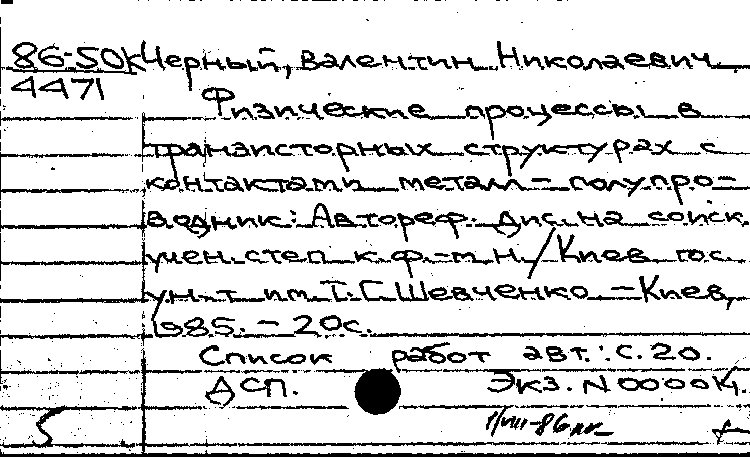 86-50к Черный, Валентин Николаевич.
4471
Физические процессы в
транзисторных структурах с
контактами металл-полупро-
водник: Автореф. дис. на соиск.
учен. степ. к.ф.-м.н./Киев. гос.
ун-т им. Т.Г. Шевченко.-Киев,
1985.-20с.
Список работ авт.: с. 20.
ДСП. Экз. N 00004.
5